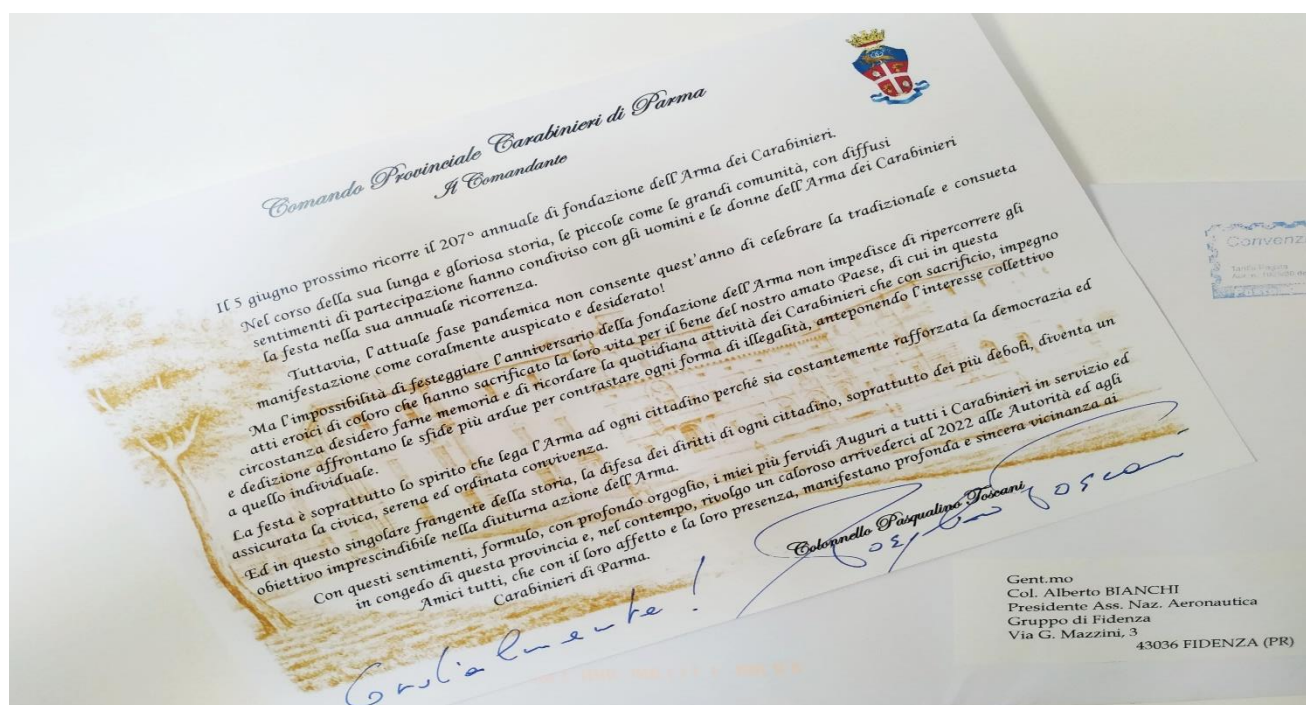 Comando Provinciale Carabinieri di Parma
Il Comandante
Il 5 giugno prossimo ricorre il 207° annuale di fondazione dell'Arma dei Carabinieri.
Nel corso della sua lunga e gloriosa storia, le piccole come le grandi comunità, con diffusi
sentimenti di partecipazione hanno condiviso con gli uomini e le donne dell'Arma dei Carabinieri
la festa nella sua annuale ricorrenza.
Tuttavia, l'attuale fase pandemica non consente quest'anno di celebrare la tradizionale e consueta
manifestazione come coralmente auspicato e desiderato!
Ma l'impossibilità di festeggiare l'anniversario della fondazione dell'Arma non impedisce di ripercorrere gli
atti eroici di coloro che hanno sacrificato la loro vita per il bene del nostro amato Paese, di cui in questa
circostanza desidero farne memoria e di ricordare la quotidiana attività dei Carabinieri che con sacrificio, impegno
e dedizione affrontano le sfide più ardue per contrastare ogni forma di illegalità, anteponendo l'interesse collettivo
a quello individuale.
La festa è soprattutto lo spirito che lega l'Arma ad ogni cittadino perché sia costantemente rafforzata la democrazia ed
assicurata la civica, serena ed ordinata convivenza.
Ed in questo singolare frangente della storia, la difesa dei diritti di ogni cittadino, soprattutto dei più deboli, diventa un
obiettivo imprescindibile nella diuturna azione dell'Arma.
Con questi sentimenti, formulo, con profondo orgoglio, i miei più fervidi Auguri a tutti i Carabinieri in servizio ed
in congedo di questa provincia e, nel contempo, rivolgo un caloroso arrivederci al 2022 alle Autorità ed agli
Amici tutti, che con il loro affetto e la loro presenza, manifestano profonda e sincera vicinanza ai
Carabinieri di Parma.
Colonnello Pasqualino Toscani
Cordialmente!
Gent.mo
Col. Alberto BIANCHI
Presidente Ass. Naz. Aeronautica
Gruppo di Fidenza
Via G. Mazzini, 3
43036 FIDENZA (PR)